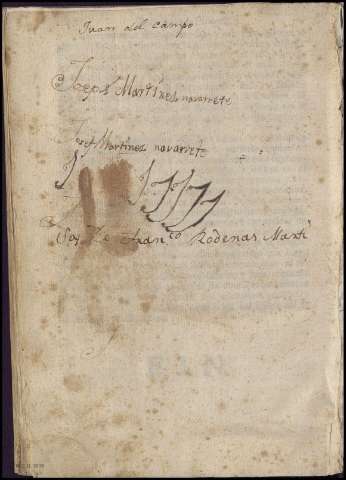 Juan del campo
Joeph Martínez navarrete
Josef Martínez navarrete
Soy De Franco Rodenas Marti